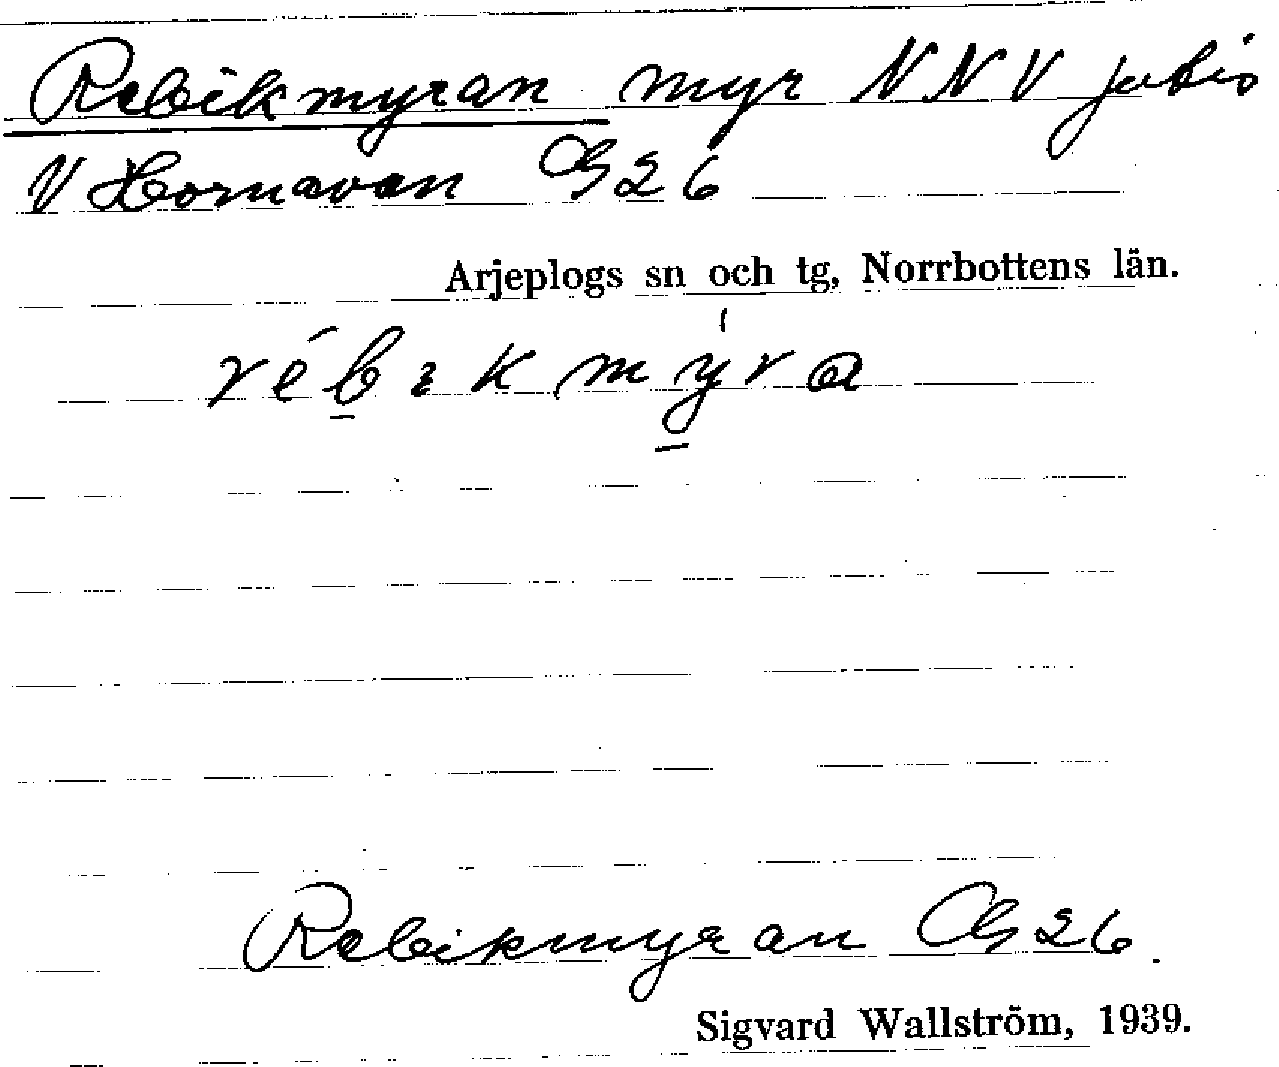 Rebikmyran myr NNV Jutis
V Hornavan G26
Arjeplogs sn och tg, Norrbottens län.
rébıkmýra
Rebikmyran G26.
Sigvard Wallström, 1939.